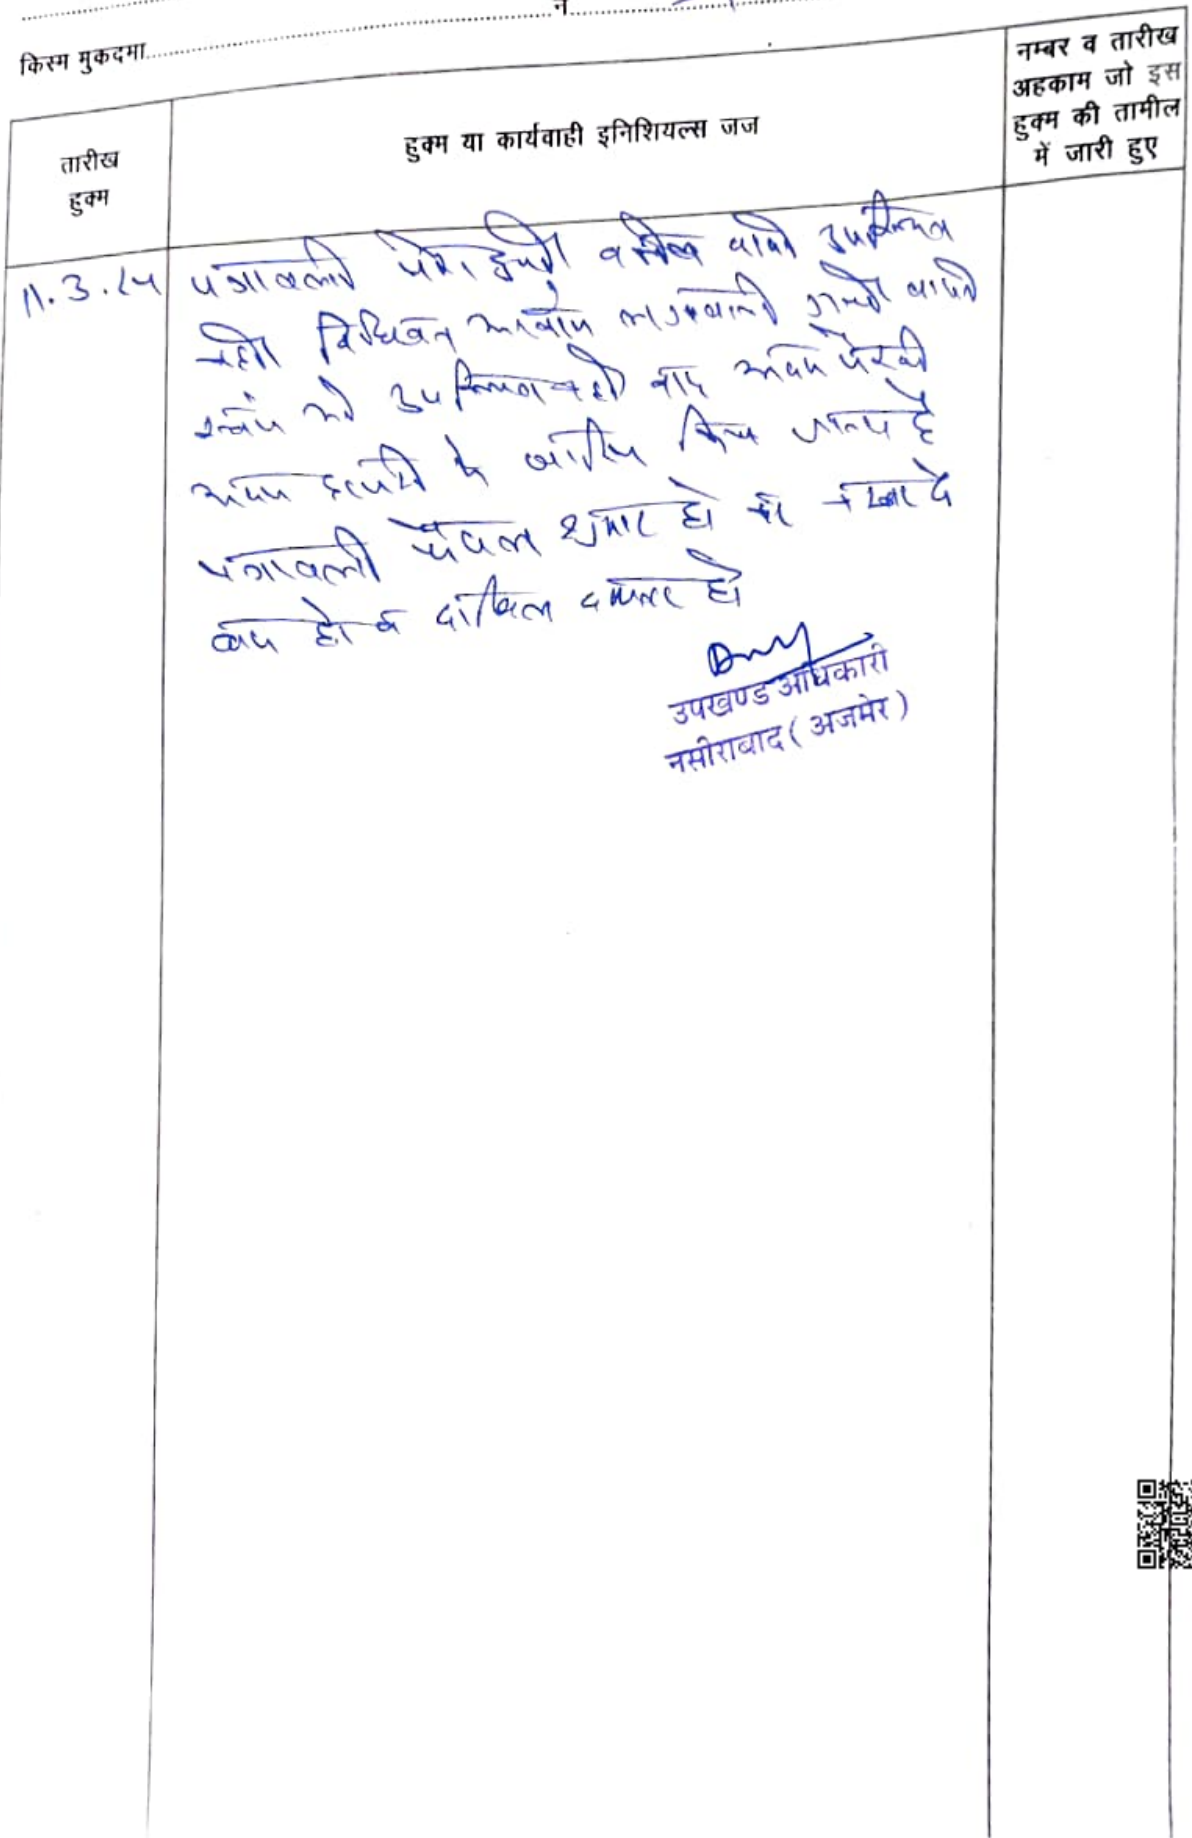 नं
किस्म मुकदमा
तारीख
हुक्म
हुक्म या कार्यवाही इनिशियल्स जज
नम्बर व तारीख
अहकाम जो इस
हुक्म की तामील
में जारी हुए
11.3.24
पत्रावली पेश हुयी वकील वादी उपस्थित
नही विधिवत आवाज लगवायी गयी वादी
स्वंय भी उपस्थित नही वाद अदम पैरवी
अदम हाजरी मे खारिज किया जाता है
पत्रावली फैसल शुमार हो कर नम्बर से
कम हो व दाखिल दफ्तर हो
उपखण्ड अधिकारी
नसीराबाद ( अजमेर )